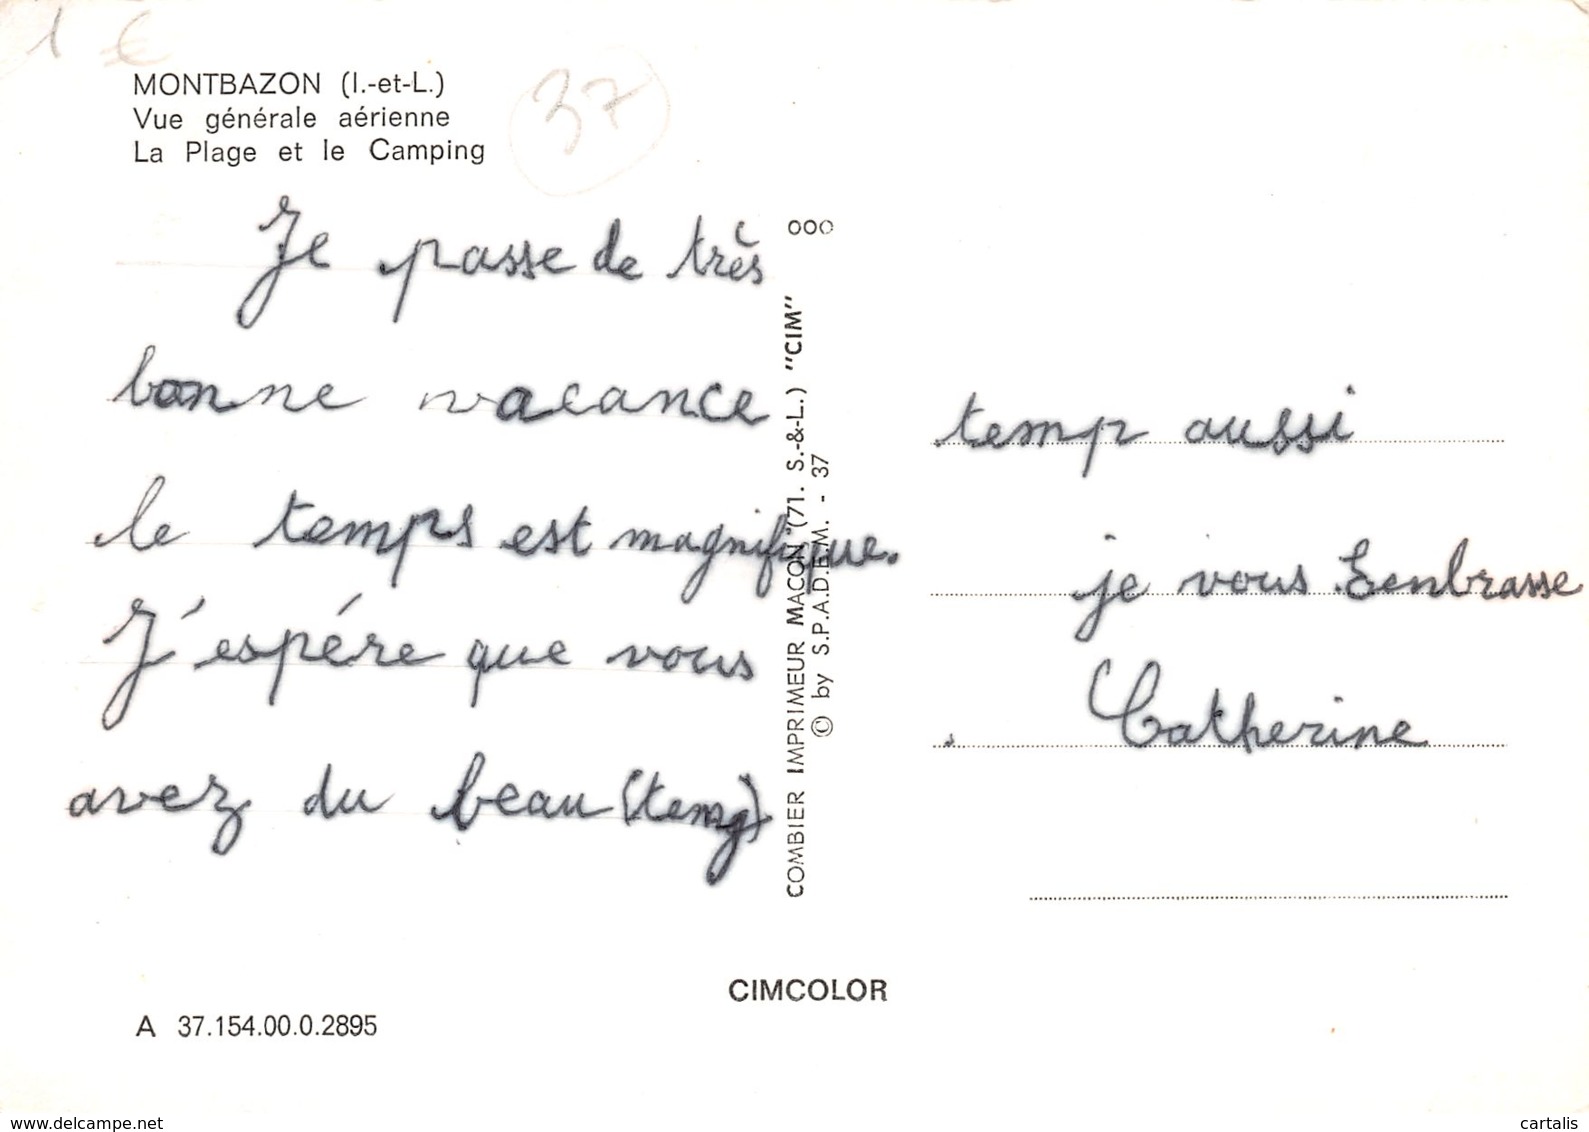 1 €
MONTBAZON (I.-et-L.)
Vue générale aérienne
La Plage et le Camping
37
Je passe de très
bonne vacance
le temps est magnifique.
J'espére que vous
avez du beau (temp)
ooo
COMBIER IMPRIMEUR MACON (71. S.-&-L.) "CIM"
© by S.P.A.D.E.M. - 37
temp aussi
je vous Eenbrasse
Catherine
CIMCOLOR
A 37.154.00.0.2895
www.delcampe.net
cartalis